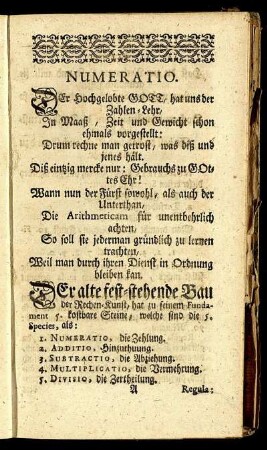 NUMERATIO.
DEr Hochgelobte GOTT, hat uns der
Zahlen-Lehr,
In Maaß / Zeit und Gewicht schon
ehmals vorgestellt:
Drum rechne man getrost, was diß und
jenes hält.
Diß eintzig mercke nur: Gebrauchs zu GOt-
tes Ehr!
Wann nun der Fürst sowohl, als auch der
Unterthan,
Die Arithmeticam für unentbehrlich
achten,
So soll sie jederman gründlich zu lernen
trachten,
Weil man durch ihren Dienst in Ordnung
bleiben kan.
DEr alte fest-stehende Bau
der Rechen-Kunst, hat zu seinem Funda-
ment 5. kostbare Steine, welche sind die 5.
Species, als:
1. NUMERATIO, die Zehlung.
2. ADDITIO, Hinzuthuung.
3. SUBTRACTIO, die Abziehung.
4. MULTIPLICATIO, die Vermehrung.
5. DIVISIO, die Zertheilung.
A Regula: